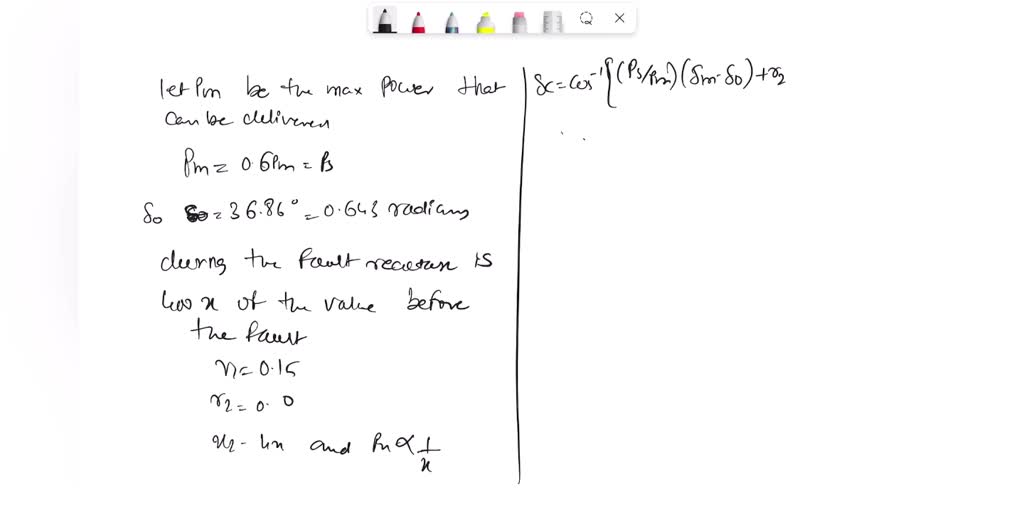 let Pm be the max power that
can be deliveren
Pm = 0.6Pm = Ps
δ0 = 36.86° = 0.643 radians
during the fault is
400 x of the value before
the fault
= 0.15
r2 = 0.0
x2 - 4x and Pm ∝ 1/x
δc = Cos⁻¹{(Ps/Pm)(δm-δ0)+r2